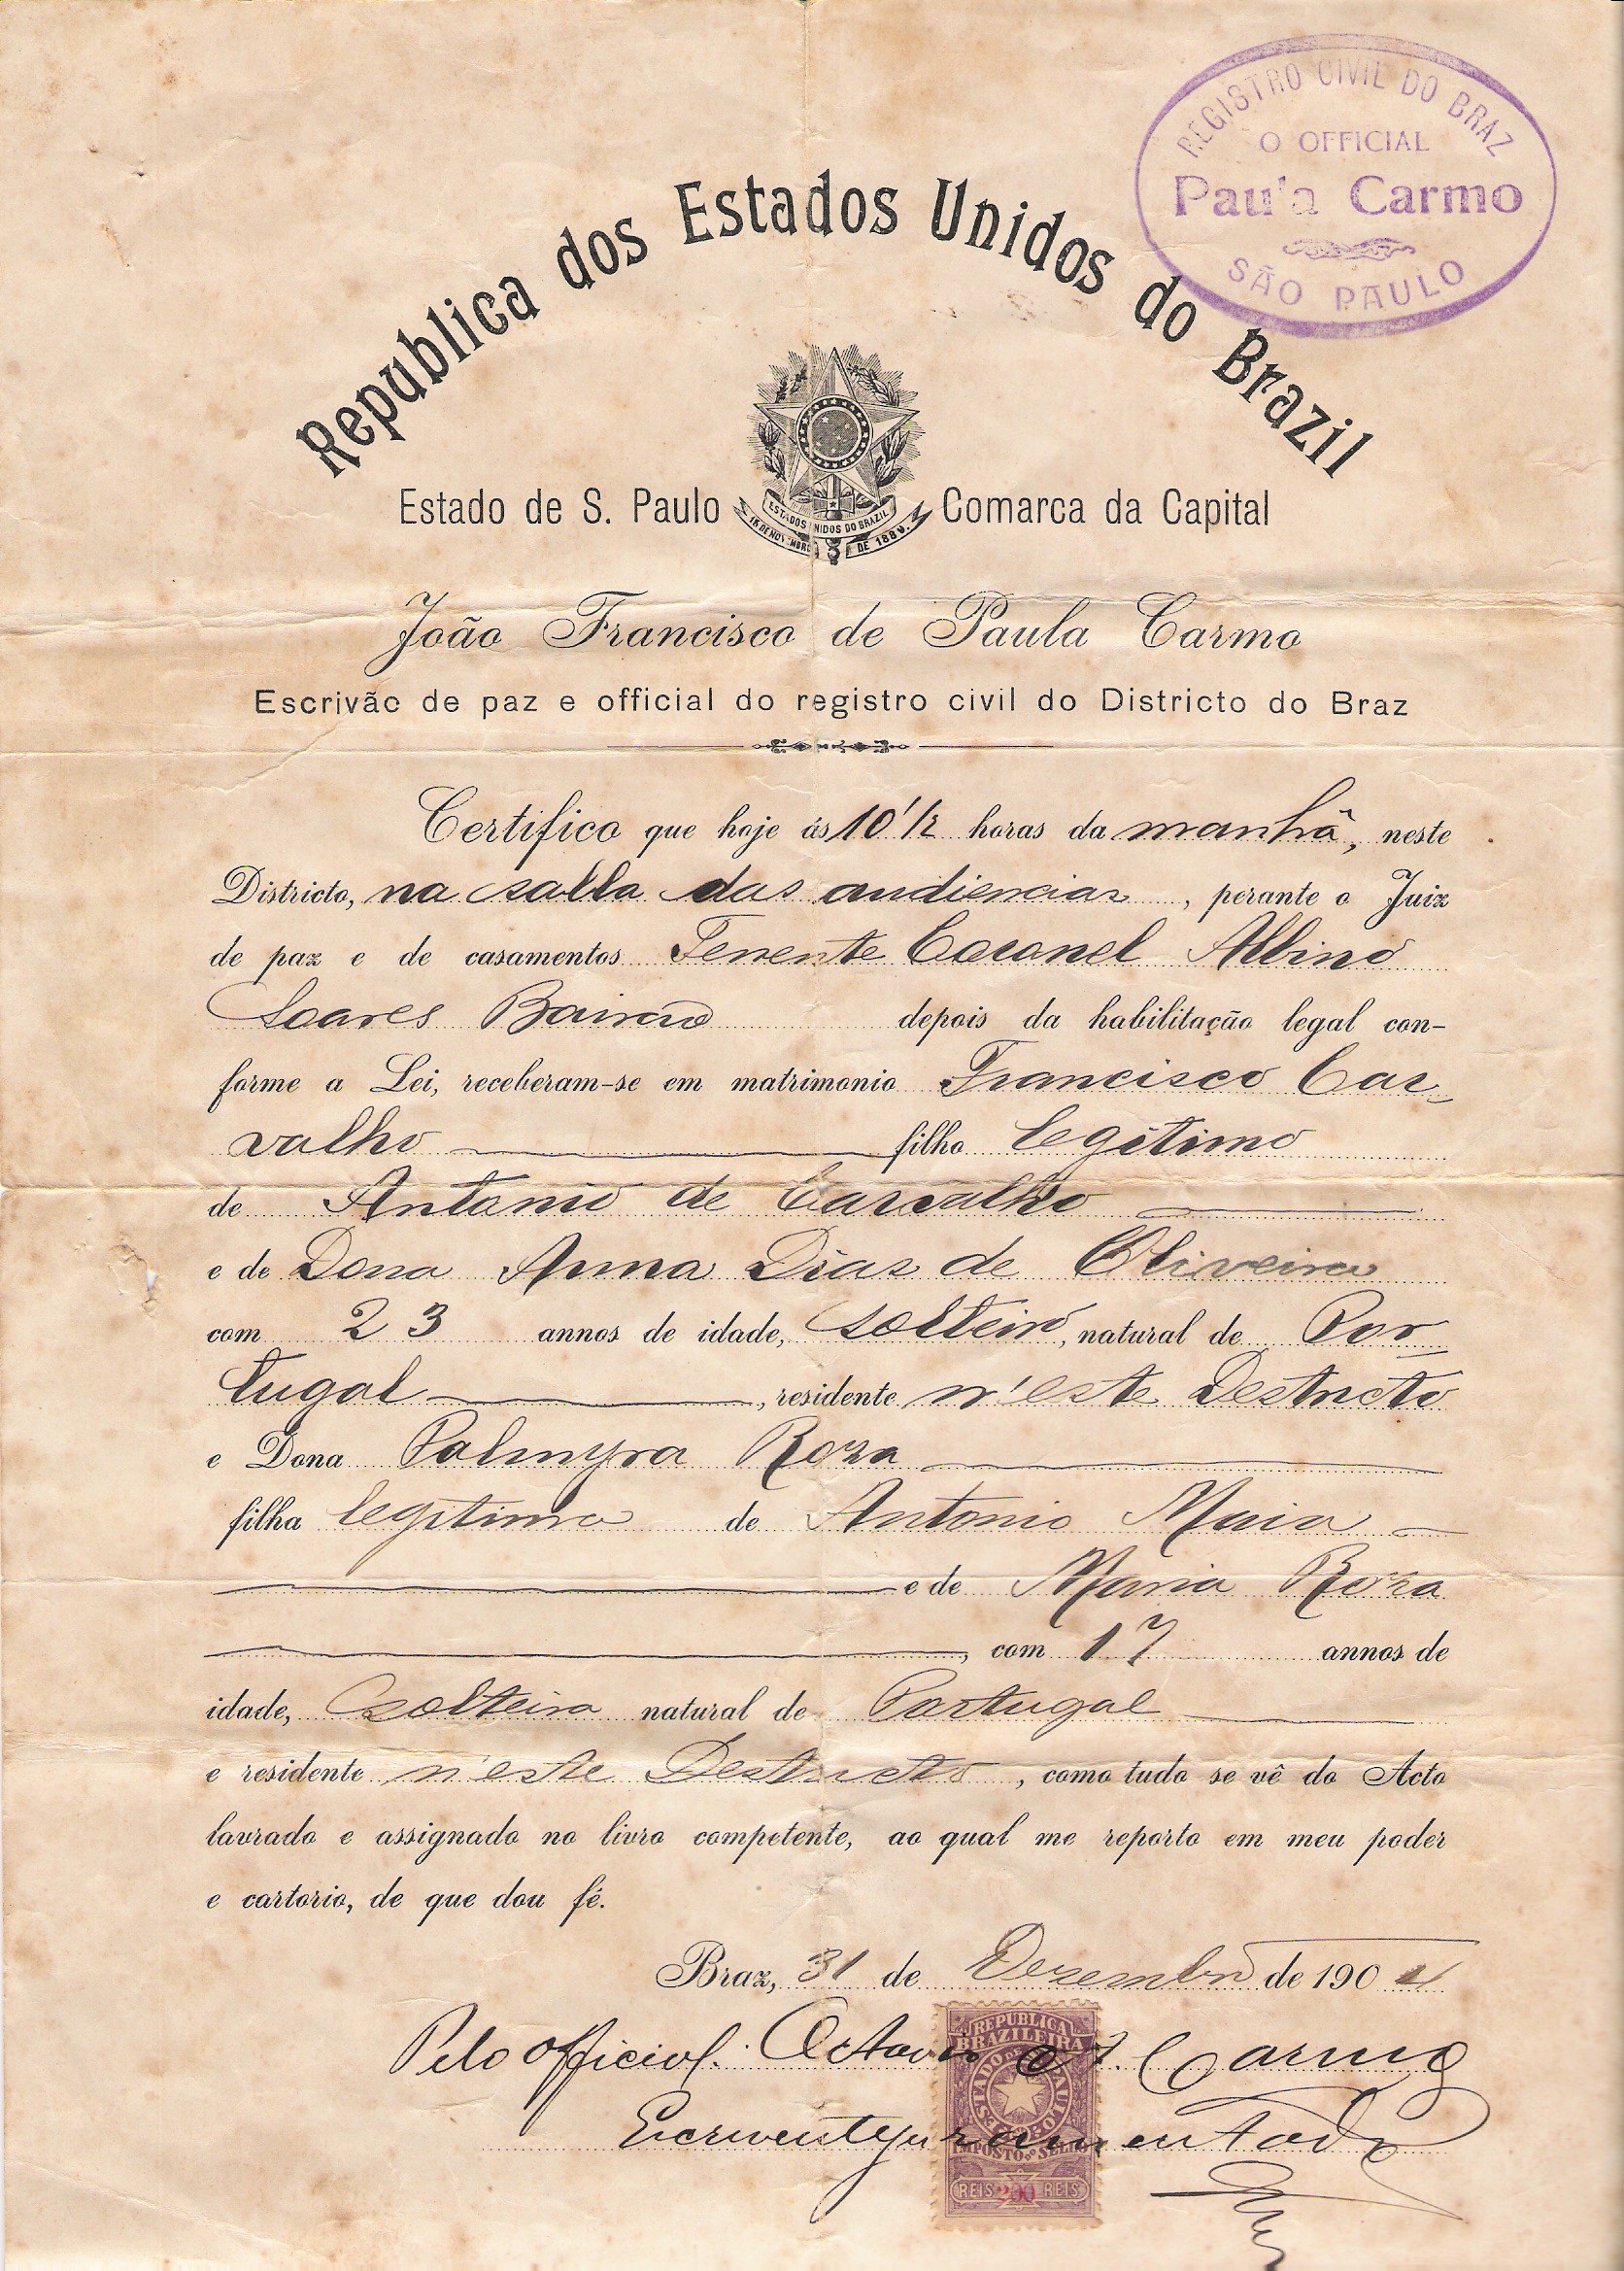 REGISTRO CIVIL DO BRAZ
O OFFICIAL
Paula Carmo
SÃO PAULO
Republica dos Estados Unidos do Brazil
Estado de S. Paulo
Comarca da Capital
ESTADOS UNIDOS DO BRAZIL
15 DE NOVEMBRO DE 1889.
João Francisco de Paula Carmo
Escrivão de paz e official do registro civil do Districto do Braz
Certifico que hoje ás 10 1/2 horas da manhã, neste
Districto, na salla das audiencias, perante o Juiz
de paz e de casamentos Tenente Coronel Albino
Soares Bairão depois da habilitação legal con-
forme a Lei, receberam-se em matrimonio Francisco Car-
valho filho legitimo
de Antonio de Carvalho
e de Dona Anna Dias de Oliveira
com 23 annos de idade, solteiro, natural de Por-
tugal, residente n'este Destricto
e Dona Palmyra Roza
filha legitima de Antonio Maia
e de Maria Roza
, com 17 annos de
idade, solteira natural de Portugal
e residente n'este Destricto, como tudo se vê do Acto
lavrado e assignado no livro competente, ao qual me reporto em meu poder
e cartorio, de que dou fé.
Braz, 31 de Dezembro de 190
Pelo official. Octavio Carmo
Escrevente juramentado
REPUBLICA
BRAZILEIRA
ESTADO DE S. PAULO
IMPOSTO DO SELLO
REIS 200 REIS